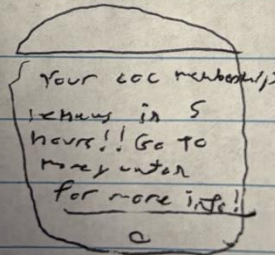 Your COC membership
renews in 5
hours!! Go to
for more info!